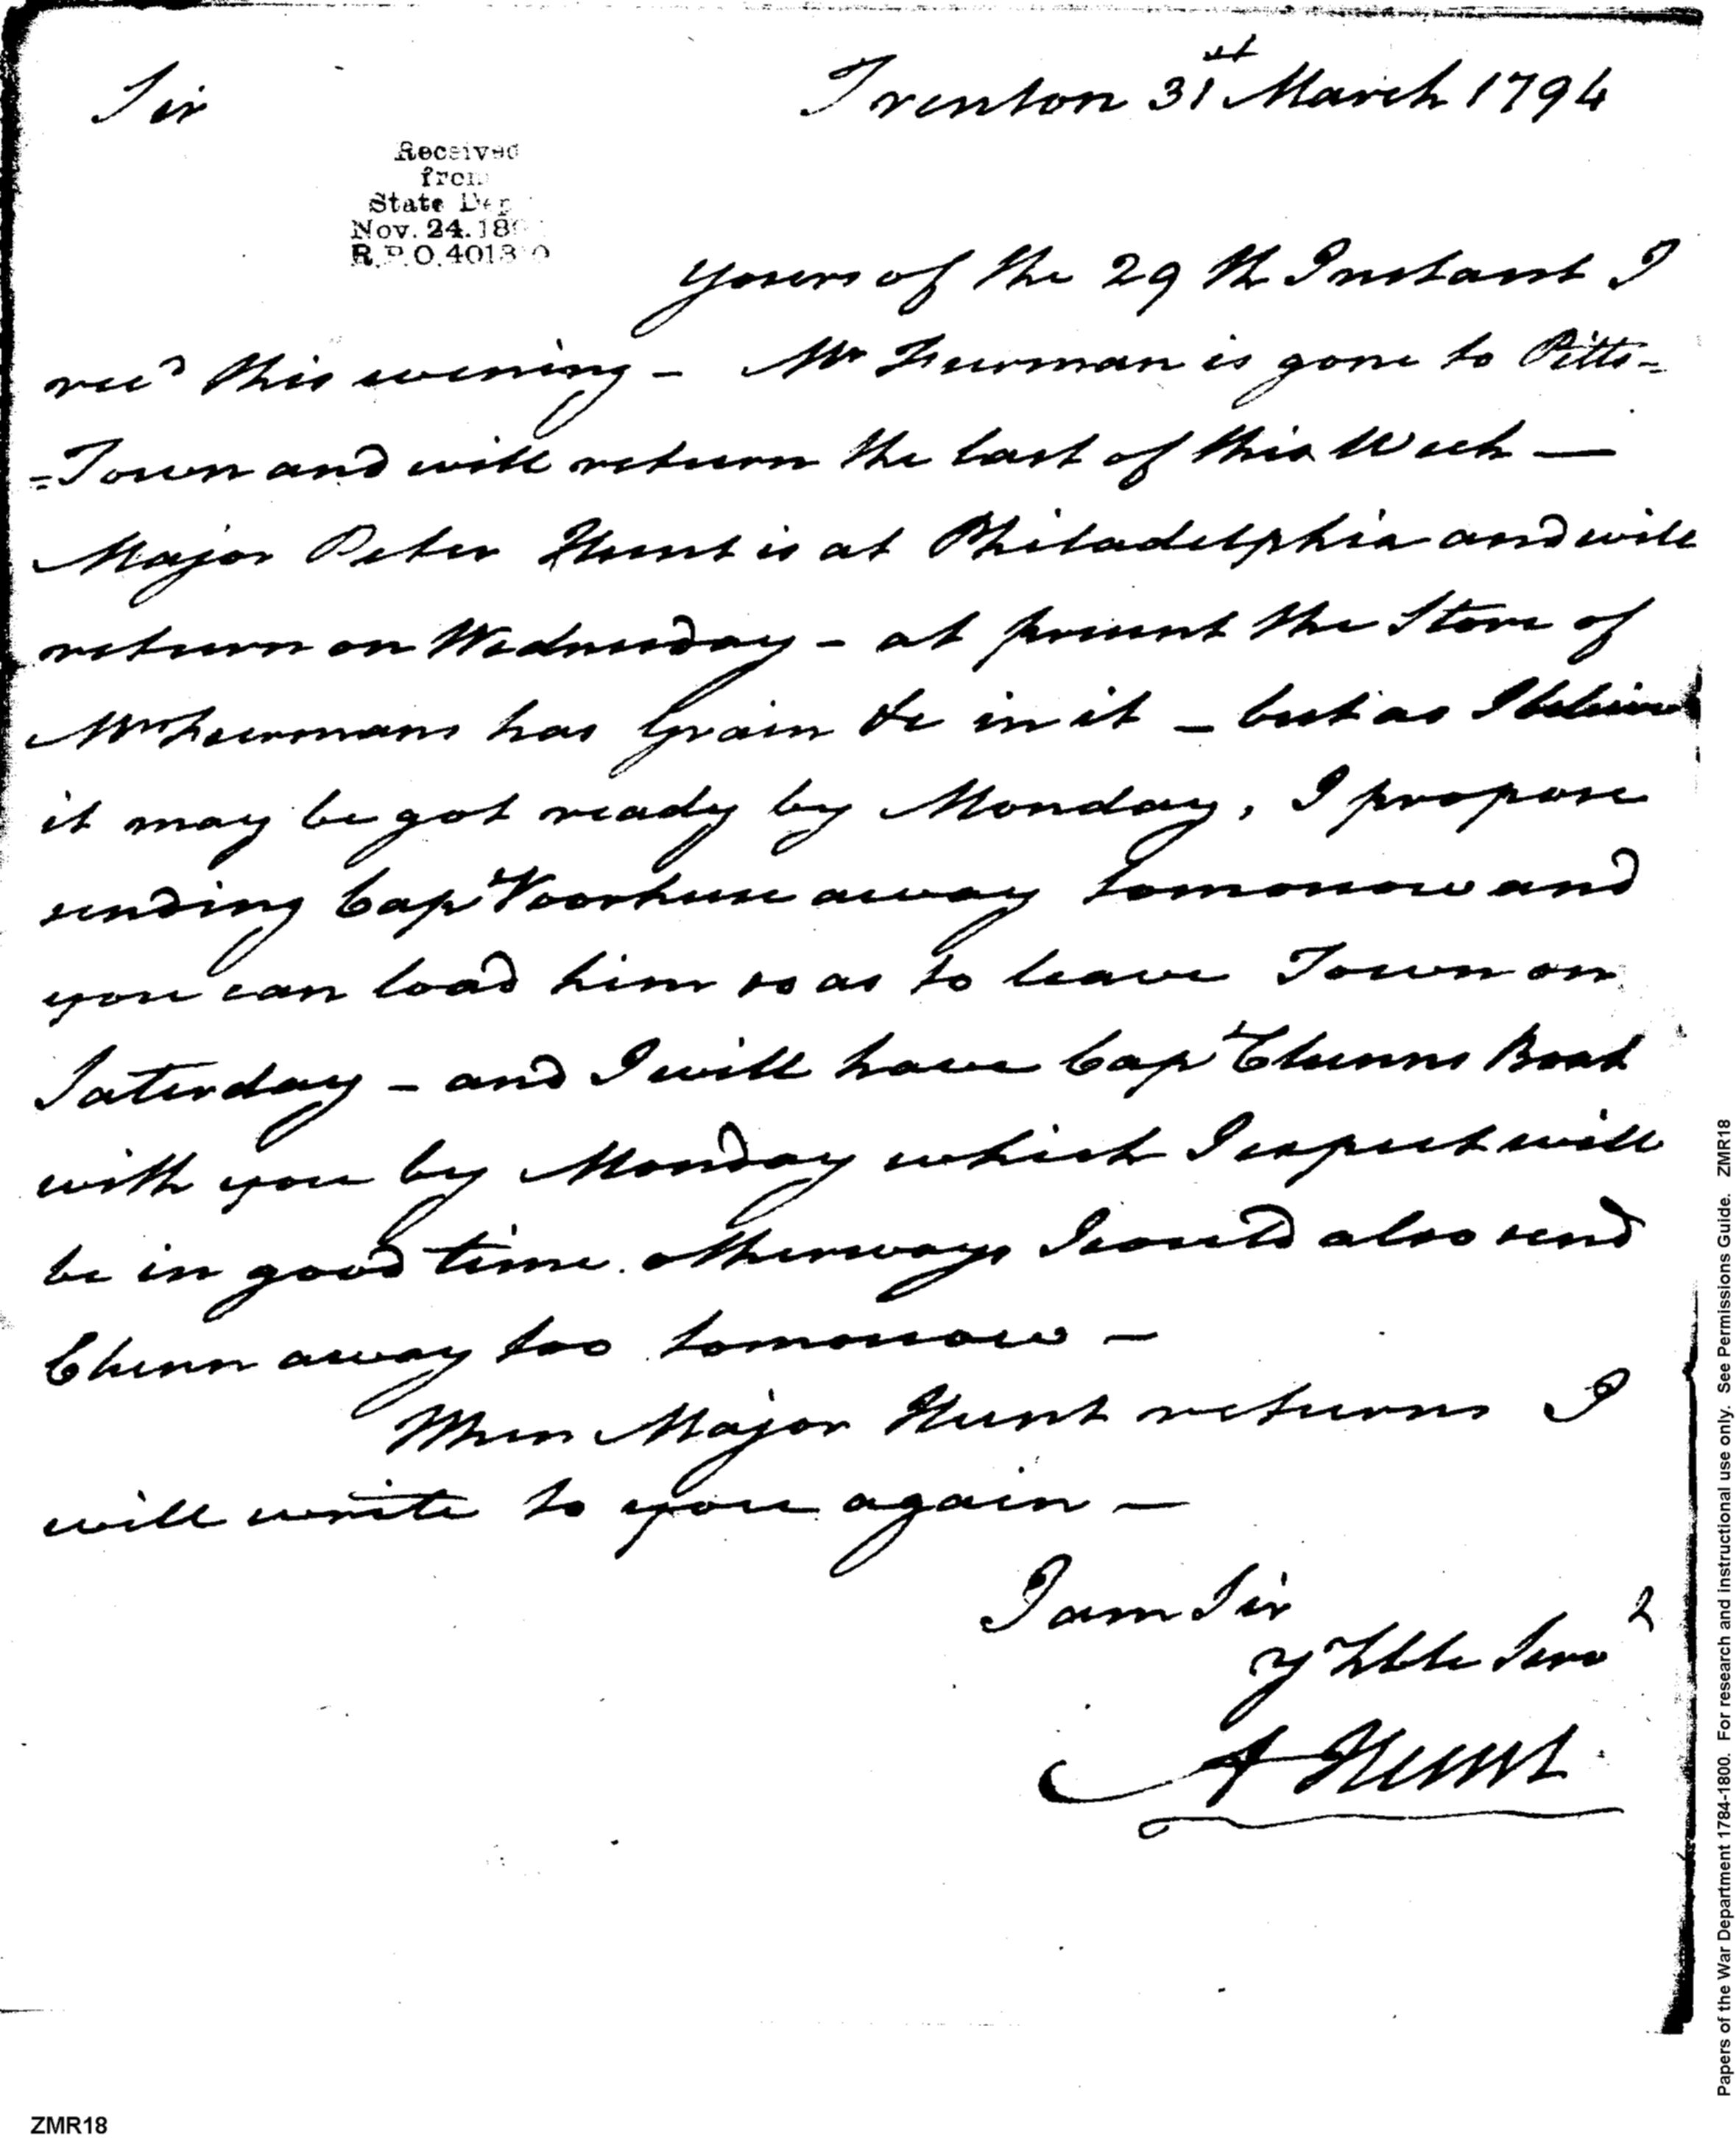 Sir
Trenton 31st March 1794
Received
from
State Dep
Nov. 24. 18
R. P. O. 4013 0
yours of the 29th Instant I
recd this evening - Mr Furman is gone to Pitts=
=Town and will return the last of this Week —
Major Peter Hunt is at Philadelphia and will
return on Wednesday - at present the Store of
Mr Furmans has Grain &c in it - but as I believe
it may be got ready by Monday, I propose
sending Capt Voorhese away tomorrow and
you can load him so as to leave Town on
Saterday - and I will have Capt Clunns Boat
with you by Monday which I expect will
be in good time. otherways I could also send
Clunn away too tomorrow -
When Major Hunt returns I
will write to you again -
I am Sir
y Hble Serv
A Hunt
2
ZMR18
Papers of the War Department 1784-1800. For research and instructional use only. See Permissions Guide. ZMR18